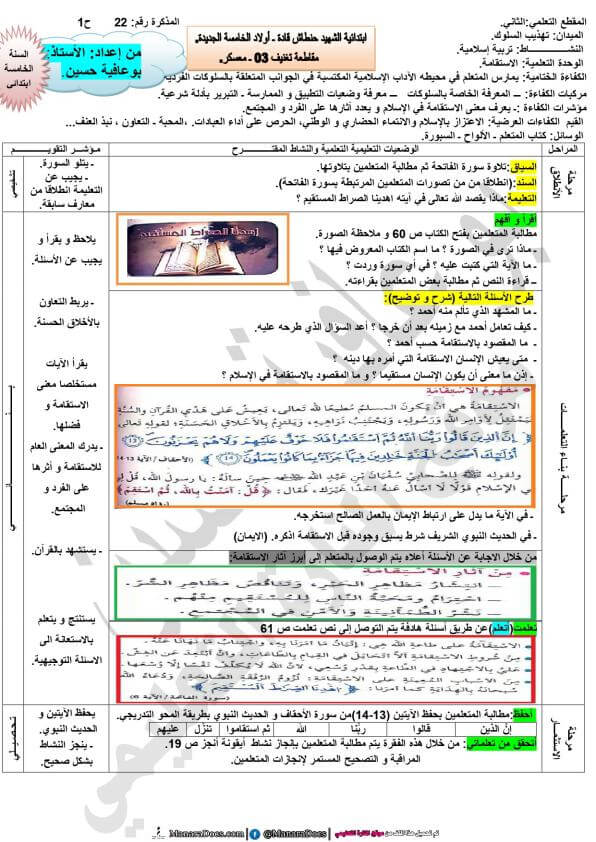 المقطع التعلمي:الثاني.
المذكرة رقم: 22 ح1
الميدان: تهذيب السلوك.
النشـــــاط: تربية إسلامية.
الوحدة التعلمية: الاستقامة.
ابتدائية الشهيد حنطاش قادة ـ أولاد الخامسة الجديدة.
مقاطعة تغنيف 03 ـ معسكر.
من إعداد: الأستاذ:
بوعافية حسين.
السنة
الخامسة
ابتدائي
الكفاءة الختامية: يمارس المتعلم في محيطه الآداب الإسلامية المكتسبة في الجوانب المتعلقة بالسلوكات الفردية
مركبات الكفاءة: ـ المعرفة الخاصة بالسلوكات ـ معرفة وضعيات التطبيق و الممارسة ـ التبرير بأدلة شرعية.
مؤشرات الكفاءة :ـ يعرف معنى الاستقامة في الإسلام و يعدد آثارها على الفرد و المجتمع.
القيم الكفاءات العرضية: الاعتزاز بالإسلام والانتماء الحضاري و الوطني، الحرص على أداء العبادات. ،المحبة ـ التعاون ، نبذ العنف...
الوسائل: كتاب المتعلم ـ الألواح ـ السبورة.
المراحل
الوضعيات التعليمية التعلمية والنشاط المقتـــرح
مؤشـر التقويــم
مرحلة الانطلاق
السياق:تلاوة سورة الفاتحة ثم مطالبة المتعلمين بتلاوتها.
السند:(انطلاقا من من تصورات المتعلمين المرتبطة بسورة الفاتحة).
التعليمة:ماذا يقصد الله تعالى في أيته اهدينا الصراط المستقيم ؟
ـ يتلو السورة.
ـ يجيب عن
التعليمة انطلاقا من
معارف سابقة.
تشخيصي
مرحلـــة بناء التعلمـــات
أقرأ و أفهم
مطالبة المتعلمين بفتح الكتاب ص 60 و ملاحظة الصورة.
ـ ماذا ترى في الصورة ؟ ما اسم الكتاب المعروض فيها ؟
ـ ما الآية التي كتبت عليه ؟ في أي سورة وردت ؟
ـ قراءة النص ثم مطالبة بعض المتعلمين بقراءته.
اهدنا الصراط المستقيم
طرح الأسئلة التالية (شرح و توضيح):
ـ ما المشهد الذي تألم منه أحمد ؟
ـ كيف تعامل أحمد مع زميله بعد أن خرجا ؟ أعد السؤال الذي طرحه عليه.
ـ ما المقصود بالاستقامة حسب أحمد ؟
ـ متى يعيش الإنسان الاستقامة التي أمره بها دينه ؟
ـ إذن ما معنى أن يكون الإنسان مستقيما ؟ و ما المقصود بالاستقامة في الإسلام ؟
مَفْهُومُ الِاسْتِقَامَةِ
الِاسْتِقَامَةُ هِيَ أَنْ يَكُونَ الْمُسْلِمُ مُطِيعًا لله تَعَالَى، يَعِيشُ عَلَى هَدْيِ الْقُرْآنِ وَالسُّنَّةِ
يَمْتَثِلُ لِأَوَامِرِ اللهِ وَرَسُولِهِ، وَيَجْتَنِبُ نَوَاهِيَهُ، وَيَلْتَزِمُ بِالْأَخْلَاقِ الْحَسَنَةِ؛ لِقَوْلِهِ تَعَالَى
إِنَّ الَّذِينَ قَالُوا رَبُّنَا اللَّهُ ثُمَّ اسْتَقَامُوا فَلَا خَوْفٌ عَلَيْهِمْ وَلَا هُمْ يَحْزَنُونَ (13)
أُولَئِكَ أَصْحَابُ الْجَنَّةِ خَالِدِينَ فِيهَا جَزَاءً بِمَا كَانُوا يَعْمَلُونَ (14) (الأحقاف / الآية 13-14)
وَلِقَوْلِهِ ﷺ لِلصَّحَابِيِّ سُفْيَانَ بْنِ عَبْدِ اللهِ حِينَ سَأَلَهُ: يَا رَسُولَ اللهِ، قُلْ لِي
فِي الْإِسْلَامِ قَوْلًا لَا أَسْأَلُ عَنْهُ أَحَدًا غَيْرَكَ، فَقَالَ: «قُلْ: آمَنْتُ بِاللهِ، ثُمَّ اسْتَقِمْ» (رواه مسلم)
ـ في الآية ما يدل على ارتباط الإيمان بالعمل الصالح استخرجه.
ـ في الحديث النبوي الشريف شرط يسبق وجوده قبل الاستقامة اذكره. (الايمان)
من خلال الاجابة عن الأسئلة أعلاه يتم الوصول بالمتعلم إلى إبرز آثار الاستقامة:
مِنْ آثَارِ الِاسْتِقَامَةِ
ـ انْتِشَارُ مَظَاهِرِ الْخَيْرِ وَتَنَاقُصُ مَظَاهِرِ الشَّرِّ.
ـ احْتِرَامُ وَمَحَبَّةُ النَّاسِ لِلْمُسْتَقِيمِ مِنْهُمْ.
ـ نَشْرُ الطُّمَأْنِينَةِ وَالْأَمْنِ فِي الْمُجْتَمَعِ.
تعلمت (أتعلم)عن طريق أسئلة هادفة يتم التوصل إلى نص تعلمت ص 61
ـ الِاسْتِقَامَةُ عَلَى طَاعَةِ اللهِ هِيَ: إِتْيَانُ مَا أَمَرَنَا بِهِ، وَاجْتِنَابُ مَا نَهَانَا عَنْهُ.
ـ مِنْ شُرُوطِ الِاسْتِقَامَةِ أَلَّا أَتَخَاذَلَ فِي الْقِيَامِ بِالطَّاعَاتِ، وَأَنْ أَبْتَعِدَ عَنِ
ـ مِنَ الْأَسْبَابِ الْمُعِينَةِ عَلَى الِاسْتِقَامَةِ: لُزُومُ الرُّفْقَةِ الصَّالِحَةِ، وَدُعَاءُ اللهِ
سُبْحَانَهُ بِالْهِدَايَةِ كَمَا أَمَرَنَا: ﴿اهْدِنَا الصِّرَاطَ الْمُسْتَقِيمَ﴾
(سورة الفاتحة / الآية 6)
يلاحظ و يقرأ و
يجيب عن الأسئلة.
ـ يربط التعاون
بالأخلاق الحسنة.
يقرأ الآيات
مستخلصا معنى
الاستقامة و
فضلها.
ـ يدرك المعنى العام
للاستقامة و أثرها
على الفرد و
المجتمع.
ـ يستشهد بالقرآن.
يستنتج و يتعلم
بالاستعانة الى
الاسئلة التوجيهية.
مرحلة الاستثمار
أحفظ:مطالبة المتعلمين بحفظ الآيتين (13-14)من سورة الأحقاف و الحديث النبوي بطريقة المحو التدريجي.
إنّ الذين قالوا ربّنا الله ثم استقاموا تنزّل عليهم
أتحقق من تعلماتي: من خلال هذه الفقرة يتم مطالبة المتعلمين بإنجاز نشاط أيقونة أنجز ص 19.
المراقبة و التصحيح المستمر لإنجازات المتعلمين.
يحفظ الآيتين و
الحديث النبوي.
ـ ينجز النشاط
بشكل صحيح.
تحصيلي
تم تحميل هذا الملف من موقع المنارة التعليمي
ManaraDocs.com | @ManaraDocs | ManaraDocs.com